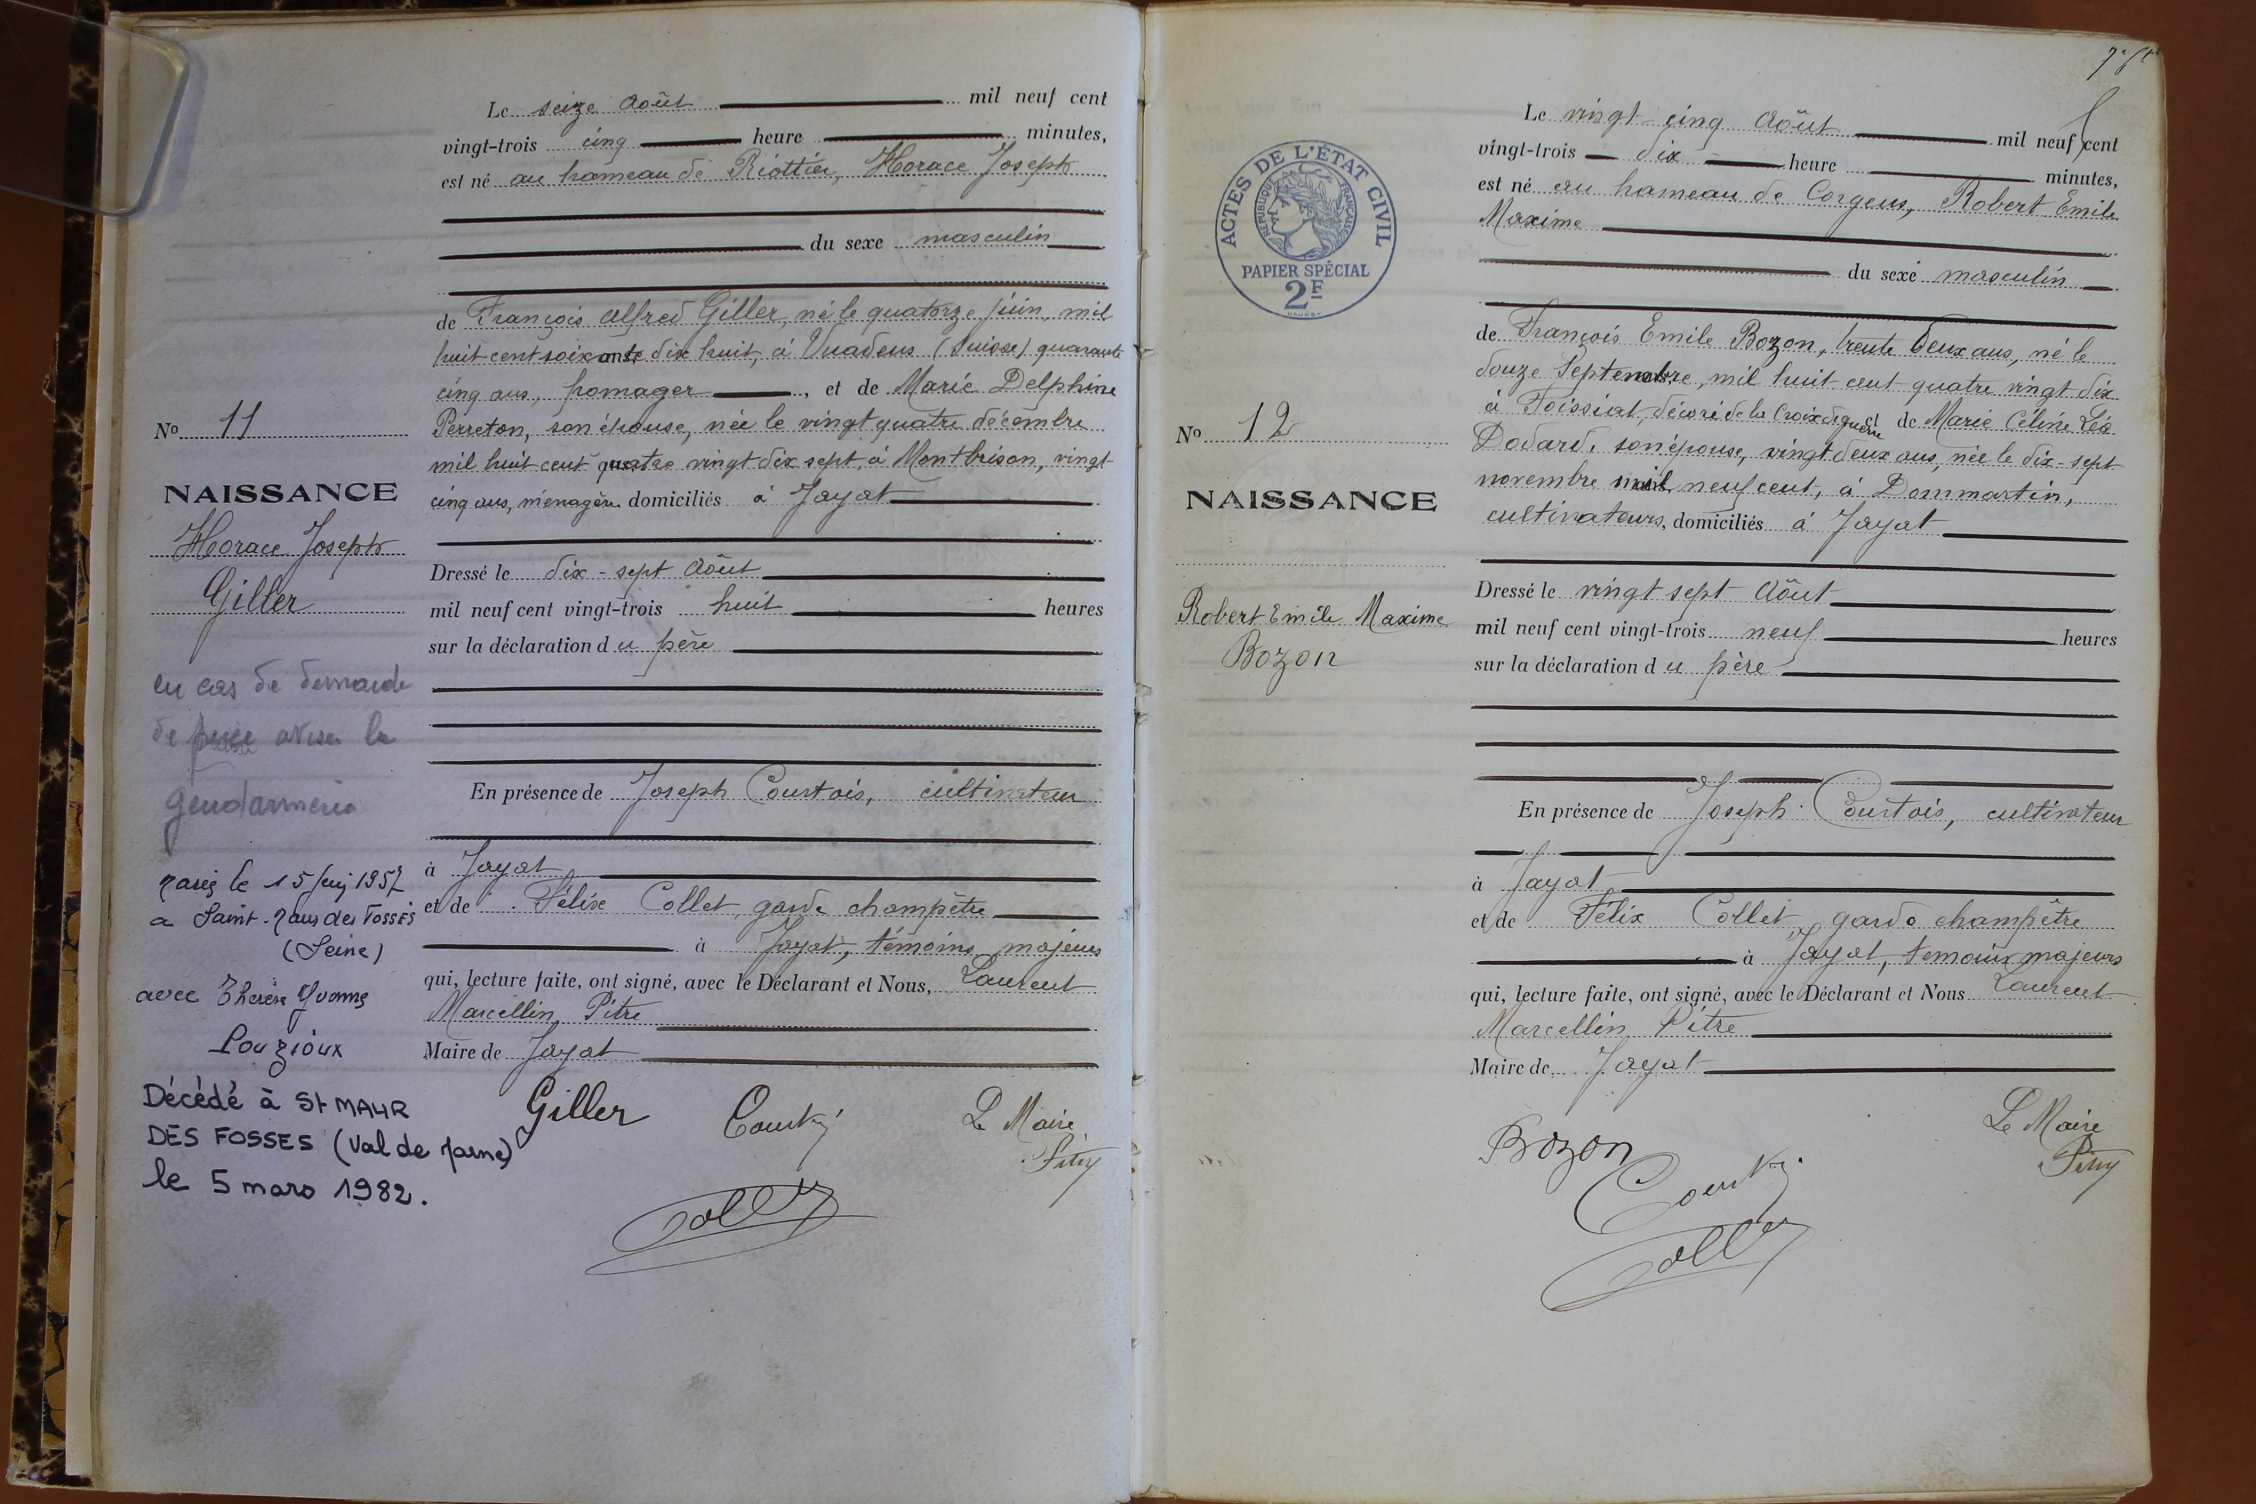 Le seize Août mil neuf cent
vingt-trois cinq heure minutes,
est né au hameau de Riottier, Horace Joseph
du sexe masculin
de François Alfred Giller, né le quatorze juin, mil
huit cent soixante dix huit, à Vuadens (Suisse) quarante
cinq ans, fromager, et de Marie Delphine
Perreton, son épouse, née le vingt quatre décembre
mil huit cent quatre vingt dix sept, à Montbrison, vingt
cinq ans, ménagère domiciliés à Jayat
Dressé le dix-sept Août
mil neuf cent vingt-trois huit heures
sur la déclaration du père
En présence de Joseph Courtois, cultivateur
à Jayat
et de Félix Collet, garde champêtre
à Jayat, témoins majeurs
qui, lecture faite, ont signé, avec le Déclarant et Nous, Laurent
Marcellin Pitre
Maire de Jayat
Giller
Le Maire
No 11
NAISSANCE
Horace Joseph
Giller
en cas de demande
de aviser la
Gendarmerie
le 15 1957
a Saint-Maur des Fossés
(Seine)
avec Thérèse Yvonne
Louzioux
Décédé à St MAUR
DES FOSSES (Val de Marne)
le 5 mars 1982.
ACTES DE L'ÉTAT CIVIL
RÉPUBLIQUE FRANÇAISE
PAPIER SPÉCIAL
2F
No 12
NAISSANCE
Robert Emile Maxime
Bozon
Le vingt-cinq Août mil neuf cent
vingt-trois dix heure minutes,
est né au hameau de Corgeus, Robert Emile
Maxime
du sexe masculin
de François Emile Bozon, trente deux ans, né le
douze Septembre, mil huit cent quatre vingt dix
à Foissiat, décoré de la Croix de guerre et de Marie Céline Léa
Dodard, son épouse, vingt deux ans, née le dix-sept
novembre mil neuf cent, à Dommartin,
cultivateurs, domiciliés à Jayat
Dressé le vingt sept Août
mil neuf cent vingt-trois neuf heures
sur la déclaration du père
En présence de Joseph Courtois, cultivateur
à Jayat
et de Félix Collet garde champêtre
à Jayat, témoins majeurs
qui, lecture faite, ont signé, avec le Déclarant et Nous Laurent
Marcellin Pitre
Maire de Jayat
Bozon
Le Maire